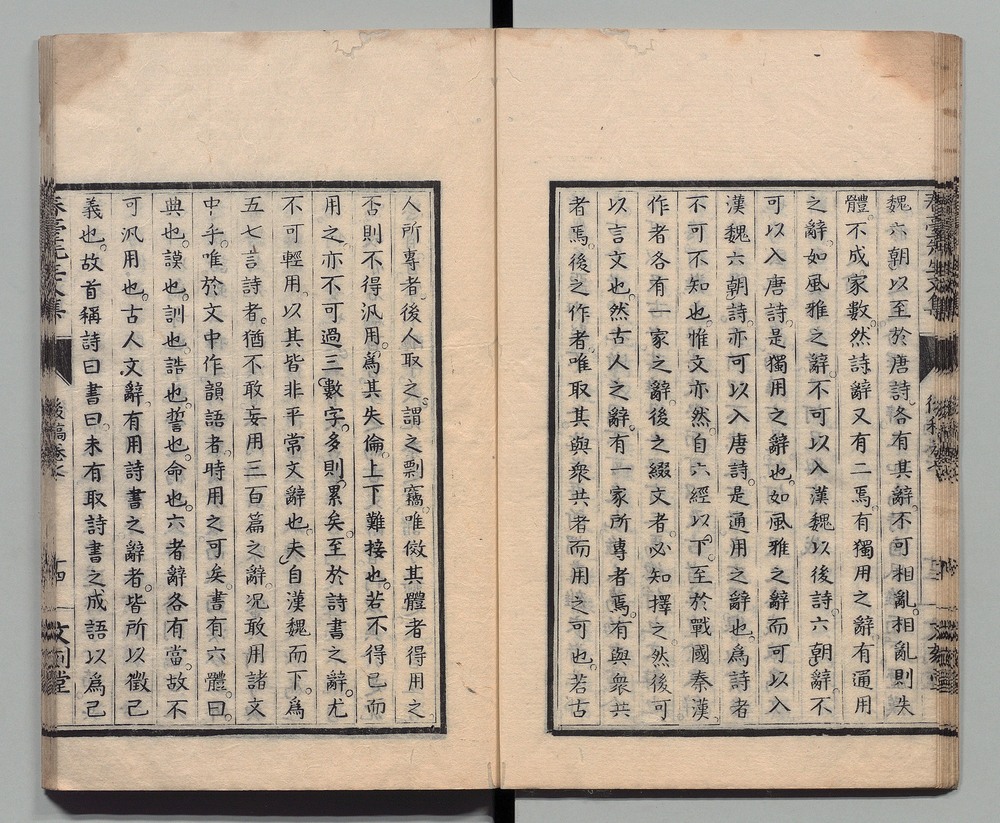 魏六朝以至於唐詩各有其辭。不可相亂。相亂則失
體。不成家數。然詩辭又有二焉。有獨用之辭。有通用
之辭。如風雅之辭。不可以入漢魏以後詩。六朝辭。不
可以入唐詩。是獨用之辭也。如風雅之辭而可以入
漢魏六朝詩。亦可以入唐詩。是通用之辭也。為詩者
不可不知也。惟文亦然。自六經以下。至於戰國秦漢。
作者各有一家之辭。後之綴文者。必知擇之。然後可
以言文也。然古人之辭。有一家所專者焉。有與衆共
者焉。後之作者。唯取其與衆共者而用之可也。若古
人所專者。後人取之。謂之剽竊。唯倣其體者得用之。
否則不得汎用。為其失倫。上下難接也。若不得已而
用之。亦不可過三數字。多則累矣。至於詩書之辭。尤
不可輕用。以其皆非平常文辭也。夫自漢魏而下。為
五七言詩者。猶不敢妄用三百篇之辭。况敢用諸文
中乎。唯於文中作韻語者。時用之可矣。書有六體。曰
典也。謨也。訓也。誥也。誓也。命也。六者辭各有當。故不
可汎用也。古人文辭。有用詩書之辭者。皆所以徵己
義也。故首稱詩曰書曰。未有取詩書之成語以為己
後稿卷七
十四
文刻堂